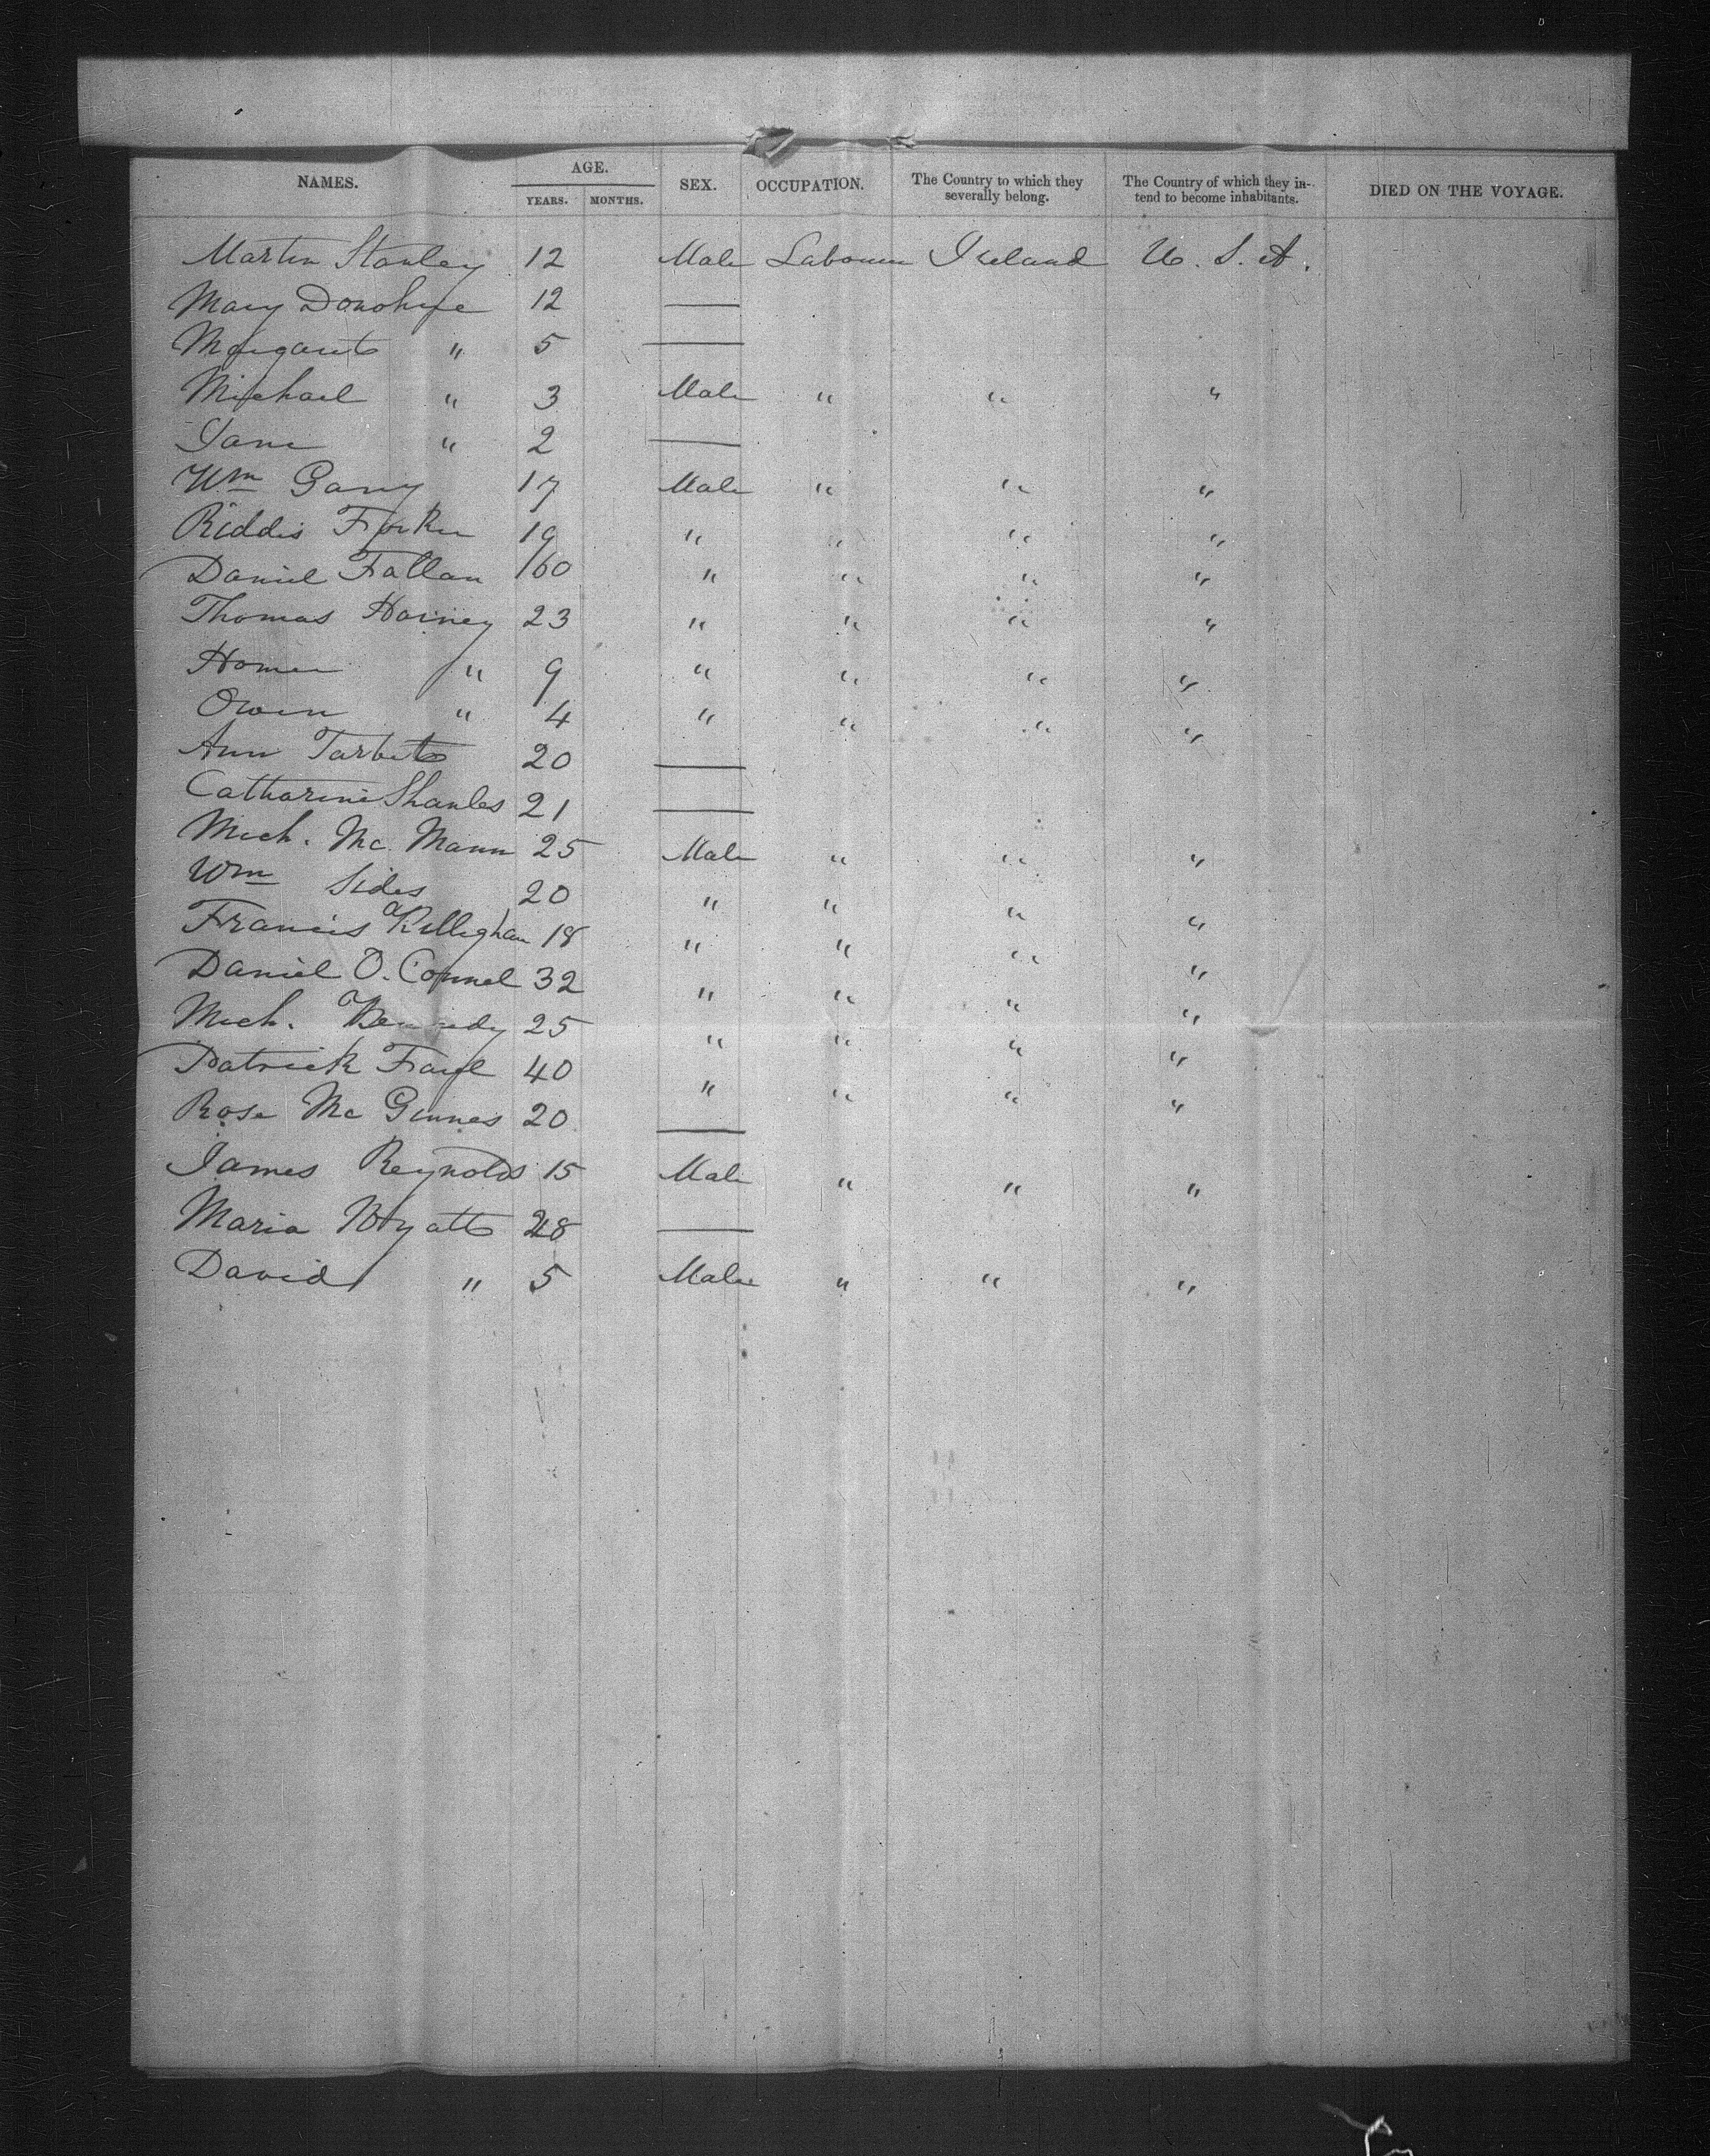 NAMES. AGE. YEARS. MONTHS. SEX. OCCUPATION. The Country to which they severally belong. The Country of which they in-tend to become inhabitants. DIED ON THE VOYAGE.
Martin Stanley 12 Male Labourer Ireland U. S. A.
Mary Donohue 12 —
Margaret " 5 —
Michael " 3 Male " " "
Jane " 2 —
Wm Garry 17 Male " " "
Riddis 19 " " " "
Daniel Fallan 60 " " " "
Thomas Hainey 23 " " " "
Homer " 9 " " " "
Owen " 4 " " " "
Ann Tarbet 20 —
Catharine Shanles 21 —
Mich. Mc Mann 25 Male " " "
Wm Sides 20 " " " "
Francis Killighan 18 " " " "
Daniel O. Connel 32 " " " "
Mich. Kennedy 25 " " " "
Patrick Faul 40 " " " "
Rose Mc Ginnes 20 —
James Reynolds 15 Male " " "
Maria Wyatt 28 —
David " 5 Male " " "